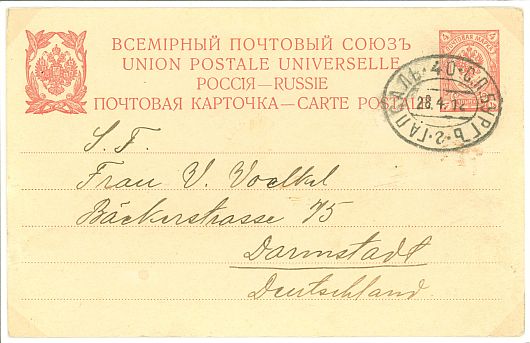 ВСЕМІРНЫЙ ПОЧТОВЫЙ СОЮЗЪ
UNION POSTALE UNIVERSELLE
РОССІЯ—RUSSIE
ПОЧТОВАЯ КАРТОЧКА—CARTE POSTALE
4 4
ПОЧТОВАЯ МАРКА
ГАПСАЛЬ·40·С.П.БУРГЪ·2·
28.4.12
S. T.
Frau V. Voelkel
Bäckerstrasse 75
Darmstadt
Deutschland